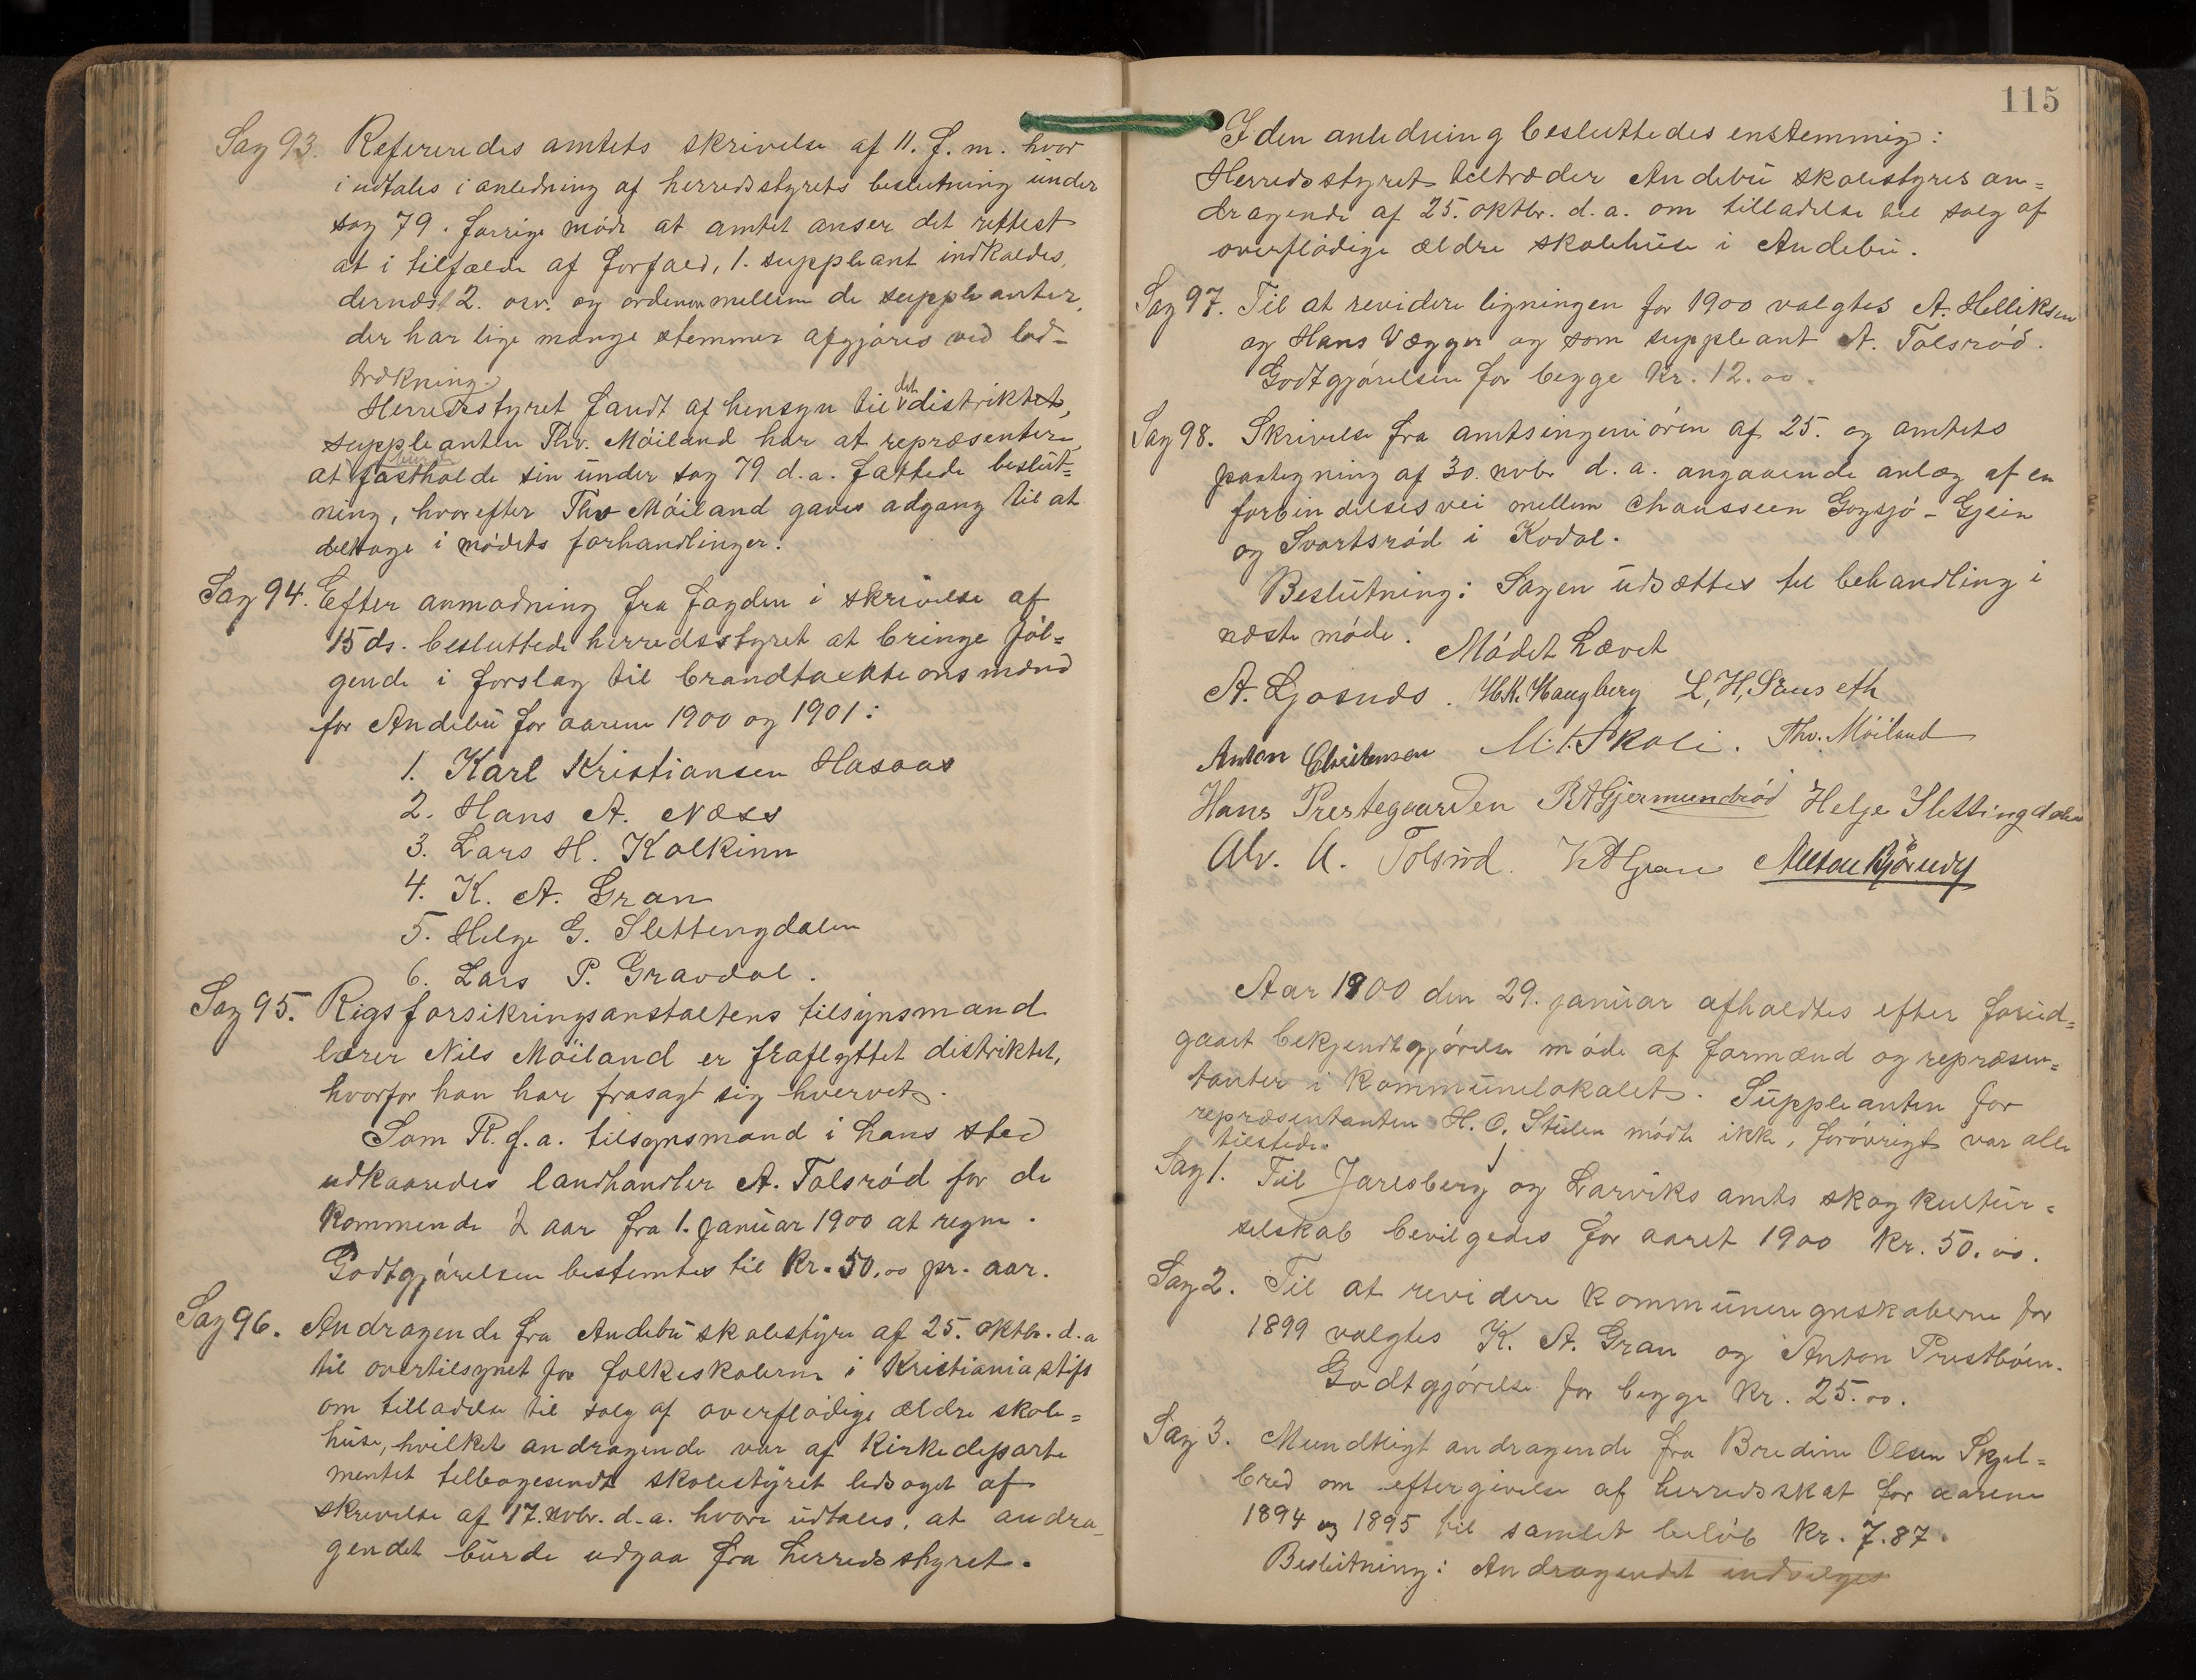 Sag 93. Refereredes amtets skrivelse af 11. f. m. hvor
i udtales i anledning af herredsstyrets beslutning under
sag 79. forrige møde at amtet anser det rettest
at i tilfælde af forfald, 1. suppleant indkaldes,
dernæst 2. osv. og ordenen mellem de suppleanter,
der har lige mange stemmer afgjøres ved lod-
trækning.
Herredsstyret fandt af hensyn til det distrikt,
suppleanten Thv. Möiland har at repræsentere,
at burde fastholde sin under sag 79 d. a. fattede beslut=
ning, hvorefter Thv Möiland gaves adgang til at
deltage i mödets forhandlinger.
Sag 94. Efter anmodning fra fogden i skrivelse af
15 ds. besluttede herredsstyret at bringe föl=
gende i forslag til brandtaxtionsmænd
for Andebu for aarene 1900 og 1901:
1. Karl Kristiansen Hasaas
2. Hans A. Næss
3. Lars H. Kolkinn
4. K. A. Gran
5. Helge G. Slettingdalen
6. Lars P. Gravdal.
Sag 95. Rigsforsikringsanstaltens tilsynsmand
lærer Nils Möiland er fraflyttet distriktet,
hvorfor han har frasagt sig hvervet.
Som R. f. a. tilsynsmand i hans sted
udkaaredes landhandler A. Tolsröd for de
kommende 2 aar fra 1. januar 1900 at regne.
Godtgjörelsen bestemtes til Kr. 50.00 pr. aar.
Sag 96. Andragende fra Andebu skolestyre af 25. oktbr. d. a
til overtilsynet for folkeskolerne i Kristiania stift
om tilladelse til salg af overflödige ældre skole=
huse, hvilket andragende var af Kirkedeparte
mentet tilbagesendt skolestyret ledsaget af
skrivelse af 17. novbr. d. a. hvori udtales, at andra-
gendet burde udgaa fra herredsstyret.
115
I den anledning besluttedes enstemmig:
Herredsstyret tiltræder Andebu skolestyres an=
dragende af 25. oktbr. d. a. om tilladelse til salg af
overflödige ældre skolehuse i Andebu.
Sag 97. Til at revidere ligningen for 1900 valgtes A. Helliksen
og Hans Vægger og som suppleant A. Tolsröd.
Godtgjörelsen for begge Kr. 12.00.
Sag 98. Skrivelse fra amtsingeniören af 25. og amtets
paategning af 30. novbr d. a. angaaende anlæg af en
forbindelsesvei mellem chausseen Gogsjö - Gjein
og Svartsröd i Kodal.
Beslutning: Sagen udsættes til behandling i
næste möde.
Mödet hævet
A. Ljosnæs. H.K. Haugberg L. H. Sauseth
Anton Christensen M. I. Skoli. Thv. Möiland
Hans Prestegaarden R A Gjermundröd Helge Slettingdalen
Alv. A. Tolsröd. K A Gran Anton Bjørndy
Aar 1900 den 29. januar afholdtes efter forud=
gaaet bekjendtgjörelse möde af formænd og repræsen=
tanter i kommunelokalet. Suppleanten for
repræsentanten H. O. Stulen mödte ikke, forövrigt var alle
tilstede.
Sag 1. Til Jarlsberg og Larviks amts skogkultur=
selskab bevilgedes for aaret 1900 Kr. 50.00.
Sag 2. Til at revidere kommuneregnskaberne for
1899 valgtes K. A. Gran og Anton Prestböen.
Godtgjörelse for begge Kr. 25.00.
Sag 3. Mundtligt andragende fra Bredine Olsen Skjel=
bred om eftergivelse af herredsskat for aarene
1894 og 1895 til samlet belöb Kr. 7.87.
Beslutning: Andragendet indvilges